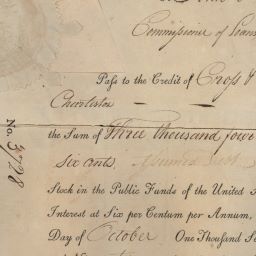 Commissioner of Loans
Pass to the Credit of Cross &
Charleston
the Sum of Three thousand four
six cents, Assumed Debt
Stock in the Public Funds of the United
Interest at Six per Centum per Annum,
Day of October One Thousand Se
No. 3728